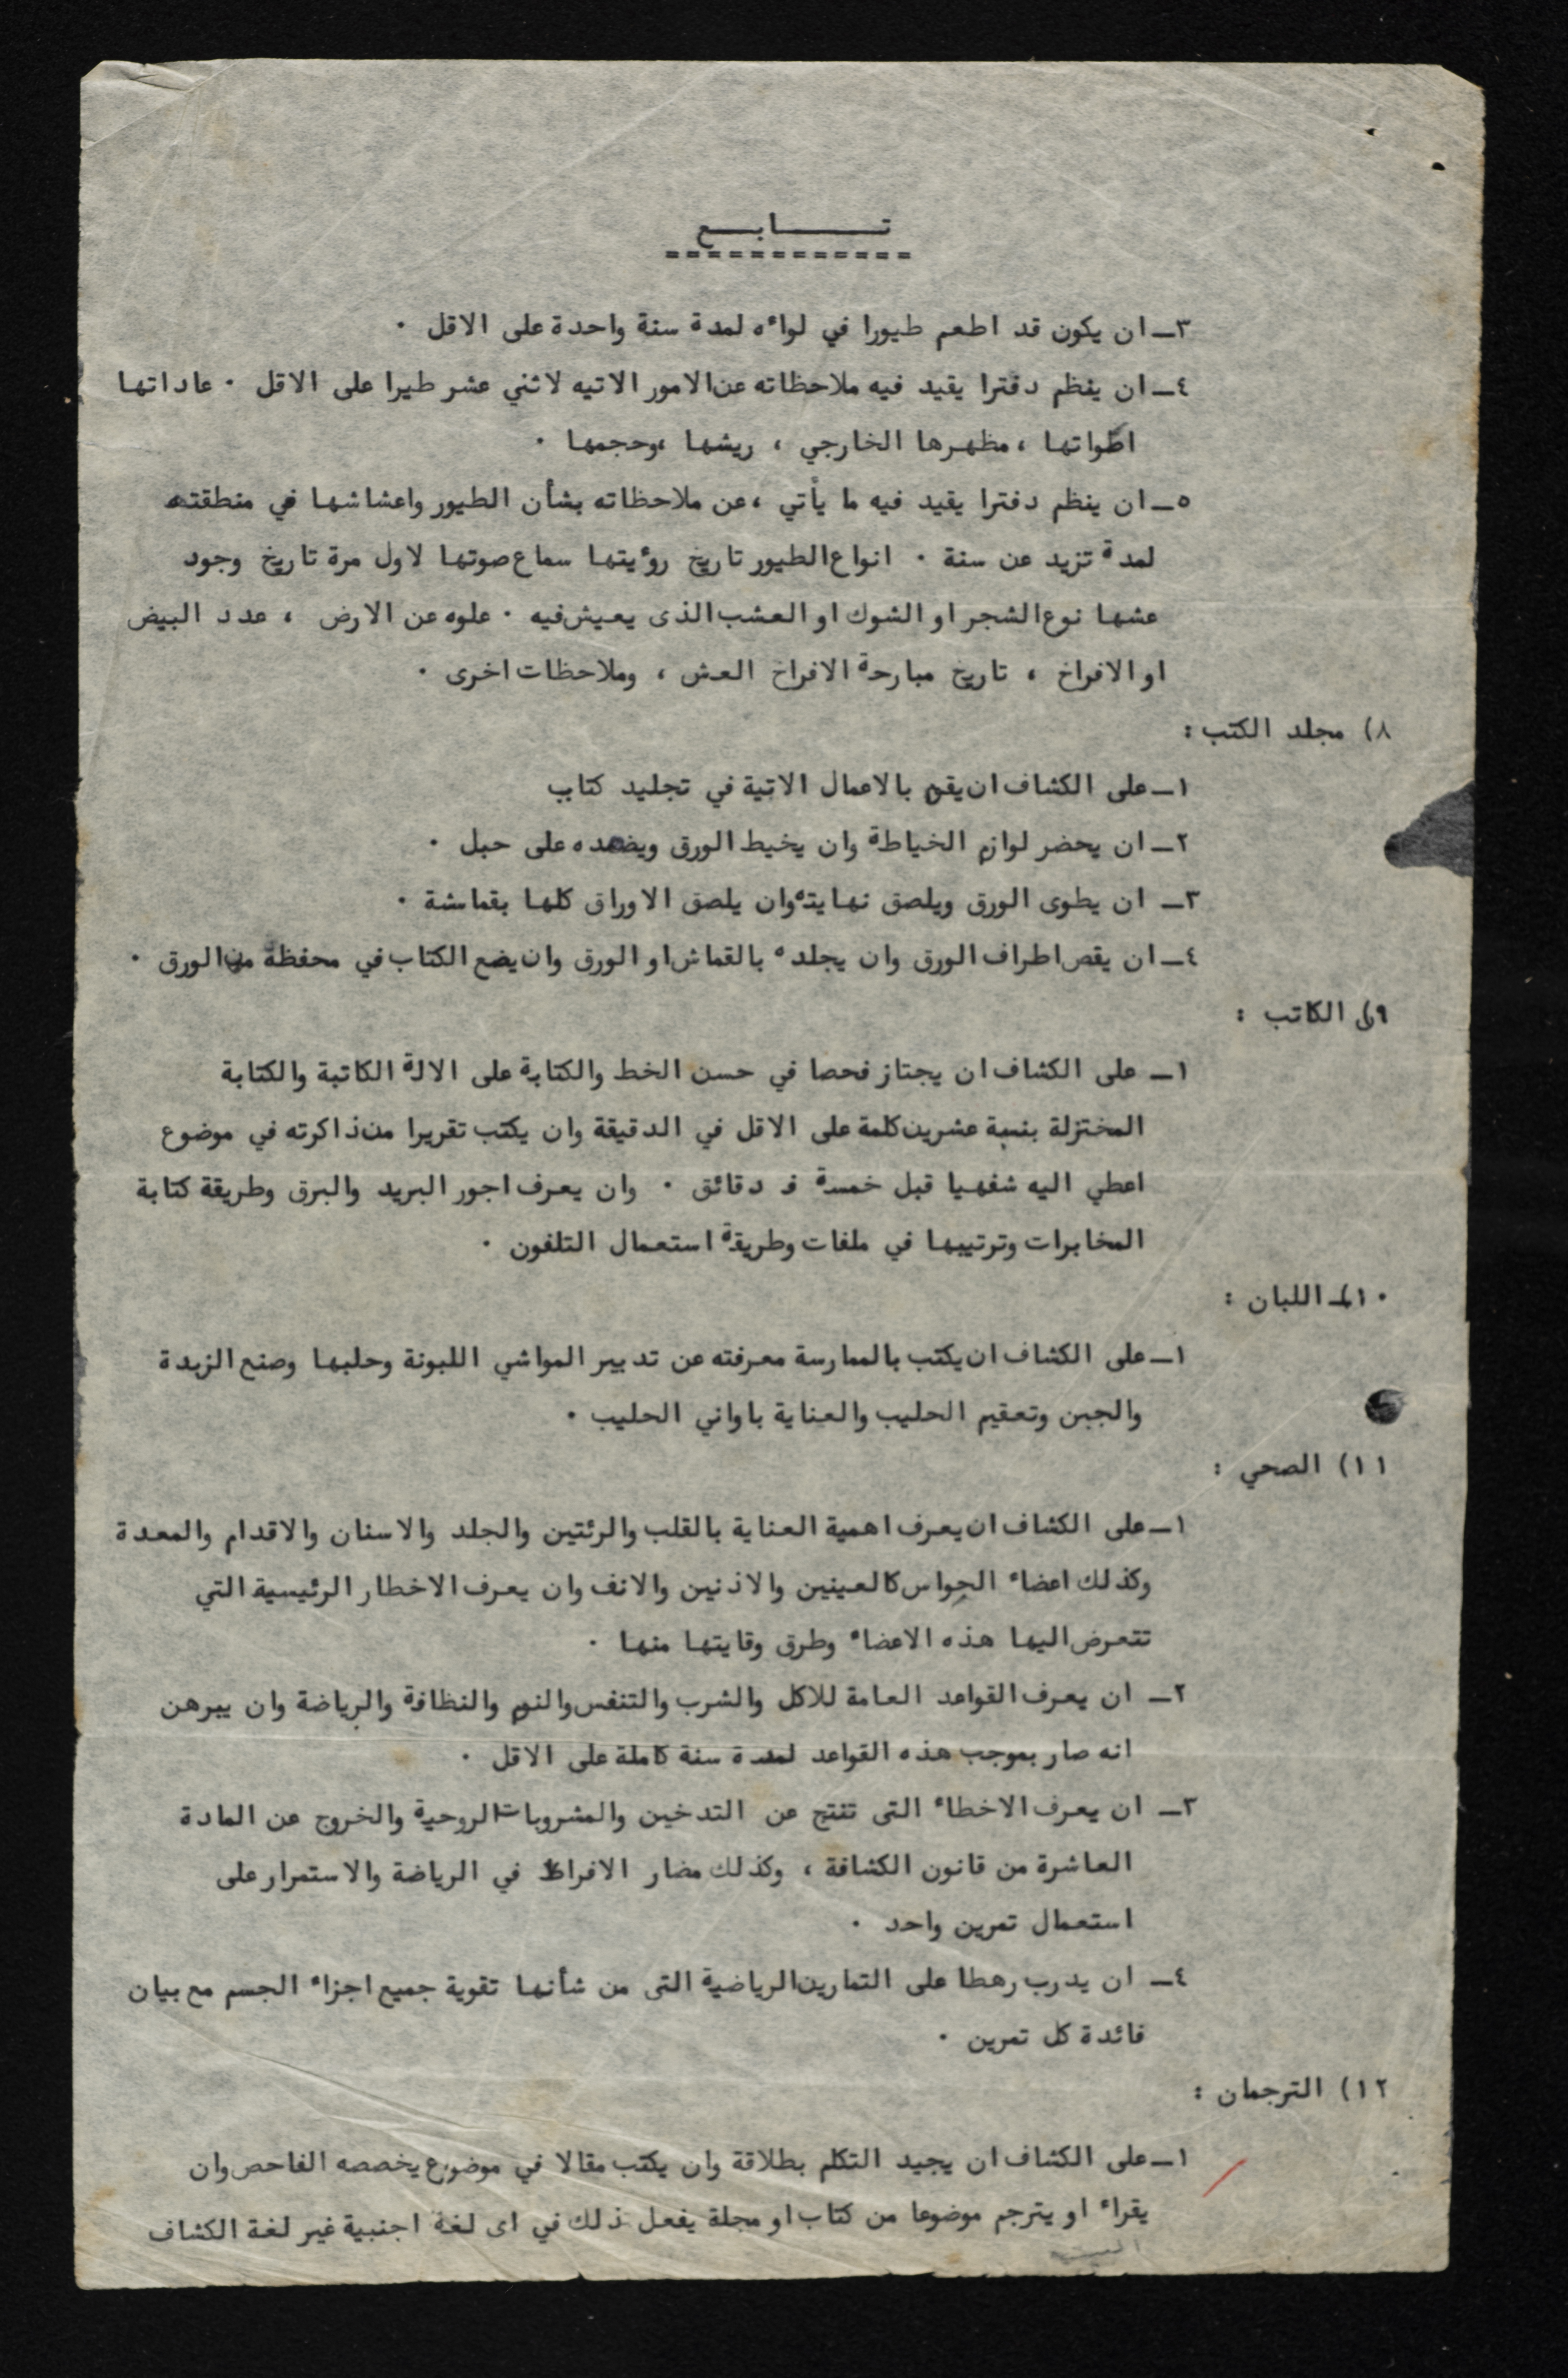 تـــابـــع
٣ـ ان يكون قد اطعم طيورا في لواءه لمدة سنة واحدة على الاقل .
٤ـ ان ينظم دفترا يقيد فيه ملاحظاته عن الامور الاتيه لاثني عشر طيرا على الاقل . عاداتها
اصواتها ، مظهرها الخارجي ، ريشها ،وحجمها .
٥ـ ان ينظم دفترا يقيد فيه ما يأتي ،عن ملاحظاته بشأن الطيور واعشاشها في منطقته
لمدة تزيد عن سنة . انواع الطيور تاريخ روءيتها سماع صوتها لاول مرة تاريخ وجود
عشها نوع الشجر او الشوك او العشب الذى يعيش فيه . علوه عن الارض ، عدد البيض
او الافراخ ، تاريخ مبارحة الافراخ العش ، وملاحظات اخرى .
٨) مجلد الكتب :
١ـ على الكشاف ان يقوم بالاعمال الاتية في تجليد كتاب
٢ـ ان يحضر لوازم الخياطة وان يخيط الورق ويضمده على حبل .
٣ـ ان يطوى الورق ويلصق نهايته وان يلصق الاوراق كلها بقماشة .
٤ـ ان يقص اطراف الورق وان يجلده بالقماش او الورق وان يضع الكتاب في محفظة من الورق .
٩) الكاتب :
١ـ على الكشاف ان يجتاز فحصا في حسن الخط والكتابة على الالة الكاتبة والكتابة
المختزلة بنسبة عشرين كلمة على الاقل في الدقيقة وان يكتب تقريرا من ذاكرته في موضوع
اعطي اليه شفهيا قبل خمسة د دقائق . وان يعرف اجور البريد والبرق وطريقة كتابة
المخابرات وترتيبها في ملفات وطريقة استعمال التلفون .
١٠) اللبان :
١ـ على الكشاف ان يكتب بالممارسة معرفته عن تدبير المواشي اللبونة وحلبها وصنع الزبدة
والجبن وتعقيم الحليب والعناية باواني الحليب .
١١) الصحي :
١ـ على الكشاف ان يعرف اهمية العناية بالقلب والرئتين والجلد والاسنان والاقدام والمعدة
وكذلك اعضاء الحواس كالعينين والاذنين والانف وان يعرف الاخطار الرئيسية التي
تتعرض اليها هذه الاعضاء وطرق وقايتها منها .
٢ـ ان يعرف القواعد العامة للاكل والشرب والتنفس والنوم والنظافة والرياضة وان يبرهن
انه صار بموجب هذه القواعد لمدة سنة كاملة على الاقل .
٣ـ ان يعرف الاخطاء التى تنتج عن التدخين والمشروبات الروحية والخروج عن المادة
العاشرة من قانون الكشافة ، وكذلك مضار الافراط في الرياضة والاستمرار على
استعمال تمرين واحد .
٤ـ ان يدرب رهطا على التمارين الرياضية التى من شأنها تقوية جميع اجزاء الجسم مع بيان
فائدة كل تمرين .
١٢) الترجمان :
١ـ على الكشاف ان يجيد التكلم بطلاقة وان يكتب مقالا في موضوع يخصصه الفاحص وان
يقراء او يترجم موضوعا من كتاب او مجلة يفعل ذلك في اى لغة اجنبية غير لغة الكشاف